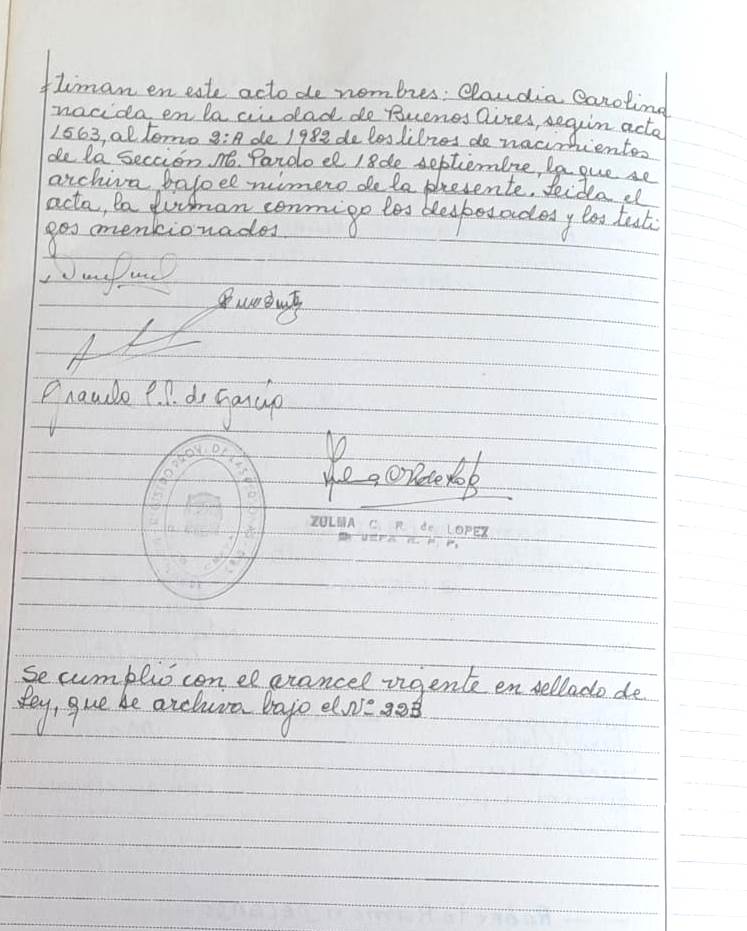 timan en este acto de nombres: Claudia Carolina
nacida en la ciudad de Buenos Aires, según acta
1563, al tomo 2:A de 1982 de los libros de nacimientos
de la Sección M. Pardo el 18 de septiembre, la que se
archiva bajo el número de la presente. Leida el
acta, la firman conmigo los desposados y los testi
gos mencionados
de Garcia
ZULMA C. R. de LOPEZ
Se cumplió con el arancel vigente en sellado de
Ley, que se archiva bajo el Nº 223